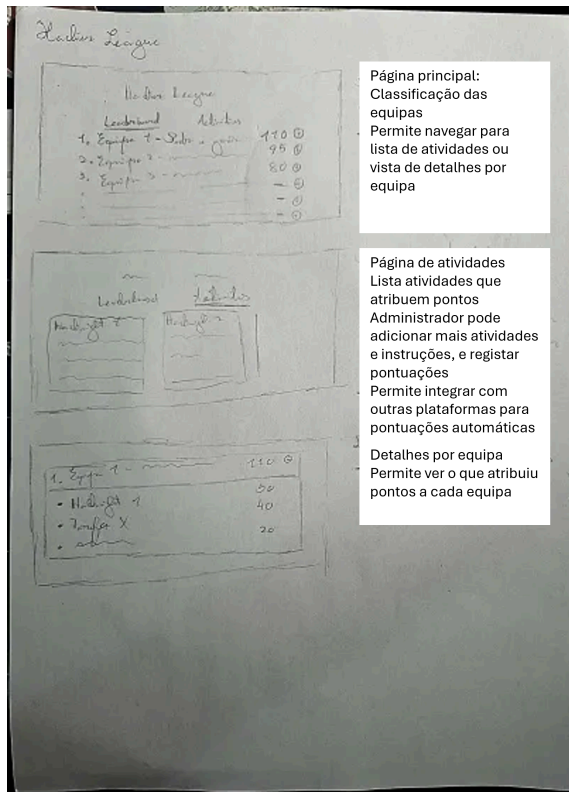 Hackers League
Hackers League
Leaderboard Activities
1. Equipa 1 - Pedro, 110
2. Equipa 2 - 95
3. Equipa 3 - 80
Leaderboard Activities
Hacknight 1 Hacknight 2
1. Equipa 1 - 110
• Hacknight 1 50
• X 40
• 20
Página principal:
Classificação das
equipas
Permite navegar para
lista de atividades ou
vista de detalhes por
equipa
Página de atividades
Lista atividades que
atribuem pontos
Administrador pode
adicionar mais atividades
e instruções, e registar
pontuações
Permite integrar com
outras plataformas para
pontuações automáticas
Detalhes por equipa
Permite ver o que atribuiu
pontos a cada equipa